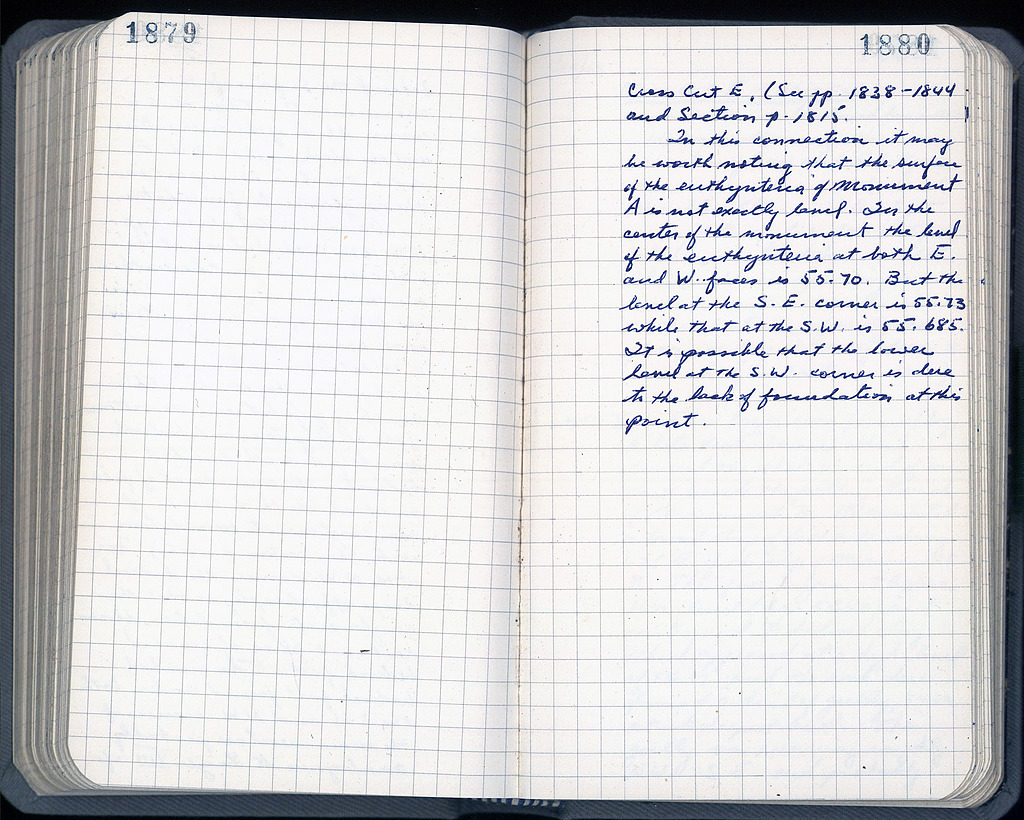 1879
1880
Cross Cut E, (See pp. 1838-1844
and Section p. 1815.
In this connection it may
be worth noting that the surface
of the euthynteria of Monument
A is not exactly level. In the
center of the monument the level
of the euthynteria at both E.
and W. faces is 55.70. But the
level at the S.E. corner is 55.73
while that at the S.W. is 55.685.
It is possible that the lower
level at the S.W. corner is due
to the lack of foundation at this
point.